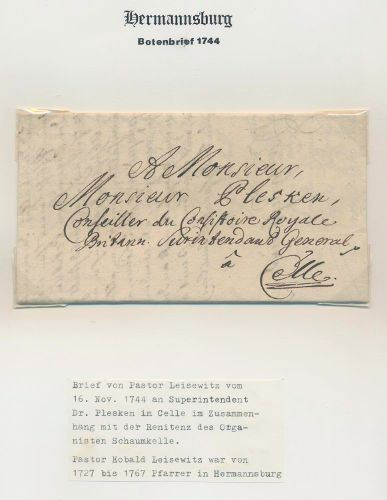 Hermannsburg
Botenbrief 1744
A Monsieur,
Monsieur Plesken,
Conseiller du Consistoire Royale
Britann. Surintendant General
à
Celle.
Brief von Pastor Leisewitz vom
16. Nov. 1744 an Superintendent
Dr. Plesken in Celle im Zusammen-
hang mit der Renitenz des Orga-
nisten Schaumkelle.
Pastor Kobald Leisewitz war von
1727 bis 1767 Pfarrer in Hermannsburg